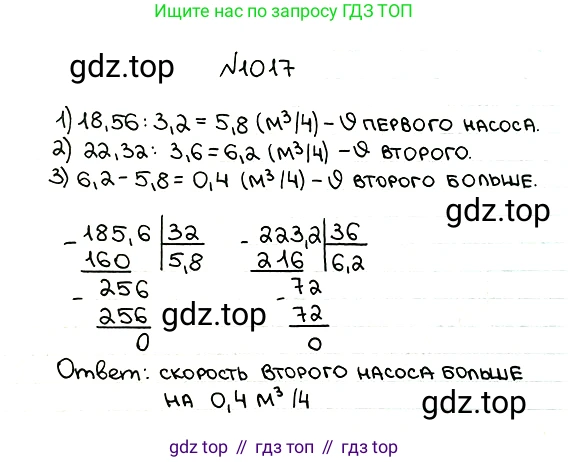 Ищите нас по запросу ГДЗ ТОП
gdz.top №1017
1) 18,56 : 3,2 = 5,8 (м³/ч) – υ первого насоса.
2) 22,32 : 3,6 = 6,2 (м³/ч) – υ второго.
3) 6,2 – 5,8 = 0,4 (м³/ч) – υ второго больше.
gdz.top
– 185,6 | 32 – 223,2 | 36
160 | 5,8 216 | 6,2
– 256 – 72
256 gdz.top 72
0 0
Ответ: скорость второго насоса больше
на 0,4 м³/ч
gdz.top
gdz.top // гдз топ // гдз.топ // gdz top